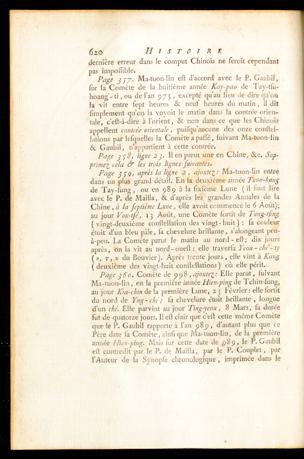 620 HISTOIRE
derniere erreur dans le comput Chinois ne seroit cependant
pas impossible.
Page 357. Ma-tuon-lin est d'accord avec le P. Gaubil,
sur la Comète de la huitième année Kay-pao de Tay-tsu-
hoang'-ti, ou de l'an 975, excepté qu'au lieu de dire qu'on
la vit entre sept heures & neuf heures du matin, il dit
simplement qu'on la voyoit le matin dans la contrée orien-
tale, c'est-à-dire à l'orient, & non dans ce que les Chinois
appellent contrée orientale, puisqu'aucune des onze constel-
lations par lesquelles la Comète a passé, suivant Ma-tuon-lin
& Gaubil, n'appartient à cette contrée.
Page 358, ligne 23. Il en parut une en Chine, &c. Sup-
primez cela & les trois lignes suivantes.
Page 359, après la ligne 2, ajoutez: Ma-tuon-lin entre
dans un plus grand détail. En la deuxième année Tuon-kung
de Tay-tsung, ou en 989 à la sixième Lune (il faut lire
avec le P. de Mailla, & d'après les grandes Annales de la
Chine, à la septième Lune, elle avoit commencé le 6 Août);
au jour 13 Août, une Comète sortit de Tung-tsing
(vingt-deuxième constellation des vingt-huit): sa couleur
étoit d'un bleu pâle, la chevelure brillante, s'alongeant peu-
à-peu. La Comète parut le matin au nord-est; dix jours
après, on la vit au nord-ouest: elle traversa
du Bouvier). Après trente jours, elle vint à Kang
(deuxième des vingt-huit constellations) où elle périt.
Page 360. Comète de 998, ajoutez: Elle parut, suivant
Ma-tuon-lin, en la première année Hien-ping de Tchin-tsung,
au jour Kia-chin de la première Lune, 23 Février: elle sortit
du nord de Yng-che; sa chevelure étoit brillante, longue
d'un ché. Elle parvint au jour Ting-yeou, 8 Mars, sa durée
fut de quatorze jours. Il est clair que c'est cette même Comète
que le P. Gaubil rapporte à l'an 989, d'autant plus que ce
Père date sa Comète, ainsi que Ma-tuon-lin, de la première
année Hien-ping. Mais sur cette date de 989, le P. Gaubil
est contredit par le P. de Mailla, par le P. Couplet, par
l'Auteur de la Synopse chronologique, imprimée dans le